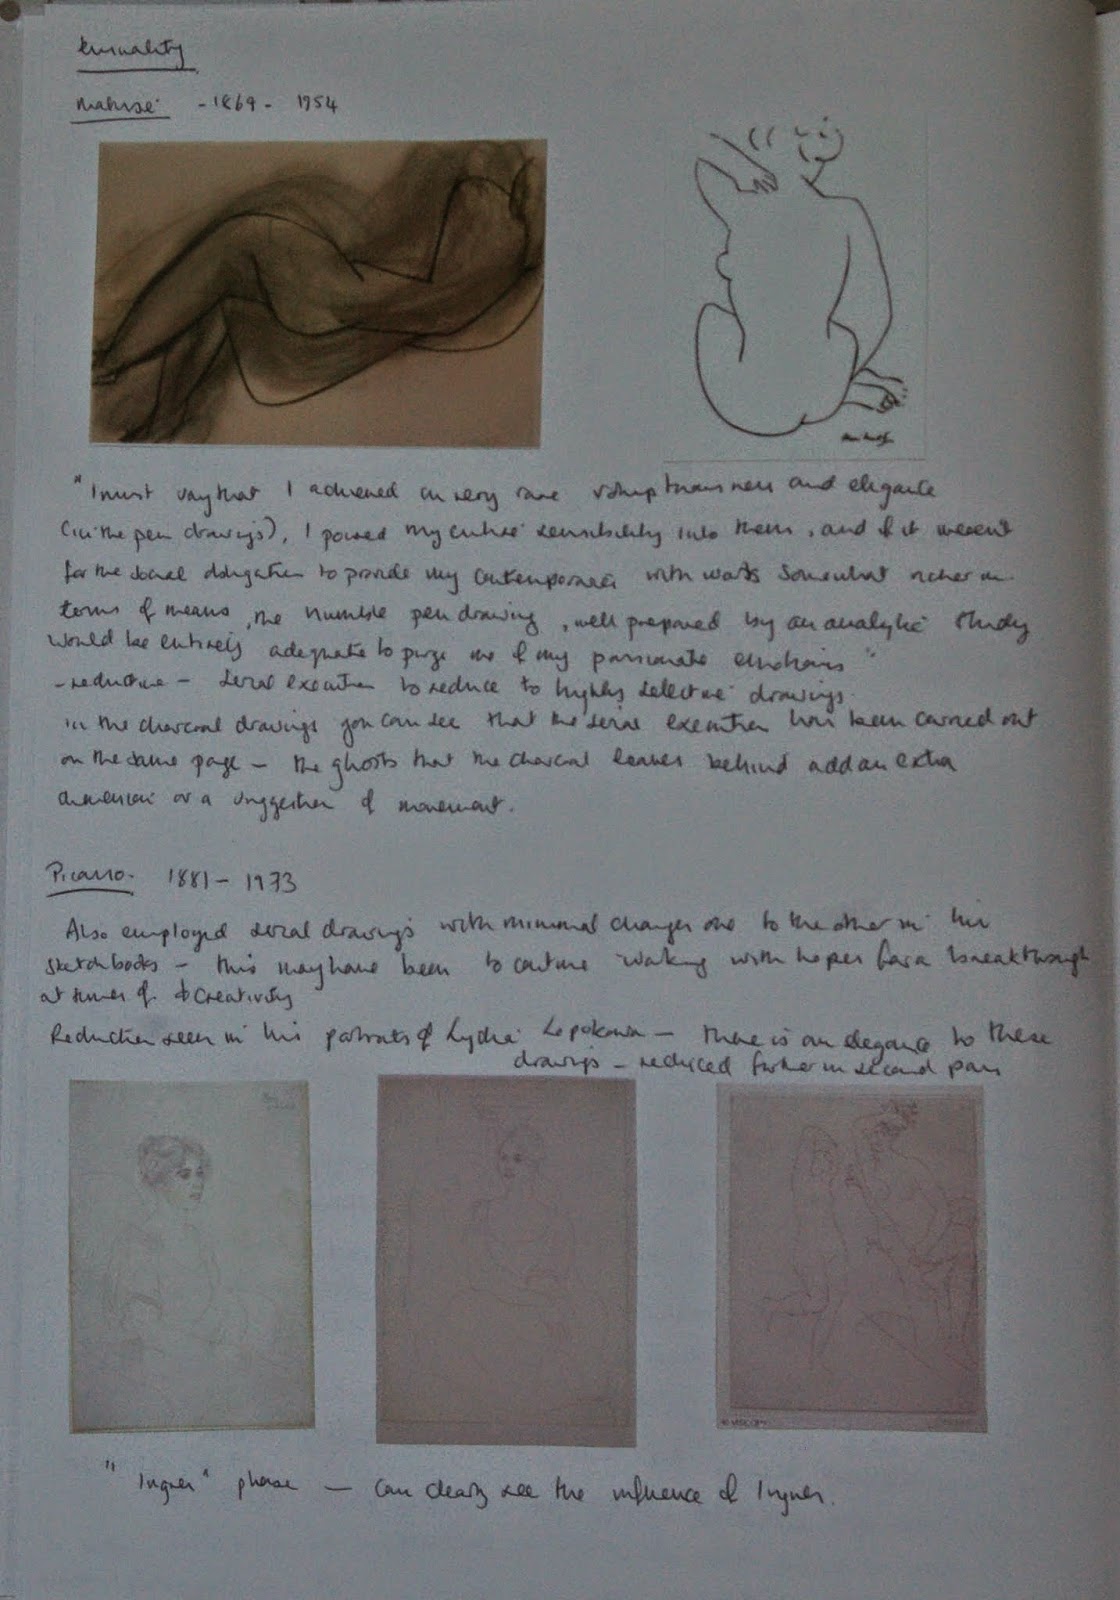 Sensuality
Matisse - 1869 - 1954
"I must say that I achieved a very rare voluptuousness and elegance
(in the pen drawings), I poured my entire sensibility into them, and if it weren't
for the social obligation to provide my contemporaries with works somewhat richer in
terms of means, the humble pen drawing, well prepared by an analytic study
would be entirely adequate to purge me of my passionate emotions"
- reductive - serial execution to reduce to highly selective drawings.
in the charcoal drawings you can see that the serial execution has been carried out
on the same page - the ghosts that the charcoal leaves behind add an extra
dimension or a suggestion of movement.
Picasso. 1881 - 1973
Also employed serial drawings with minimal changes one to the other in his
sketchbooks - this may have been to continue working with hopes for a breakthrough
at times of ↓ creativity
Reduction seen in his portraits of Lydia Lopokova - there is an elegance to these
drawings - reduced further in second pair
"Ingres" phase - can clearly see the influence of Ingres.